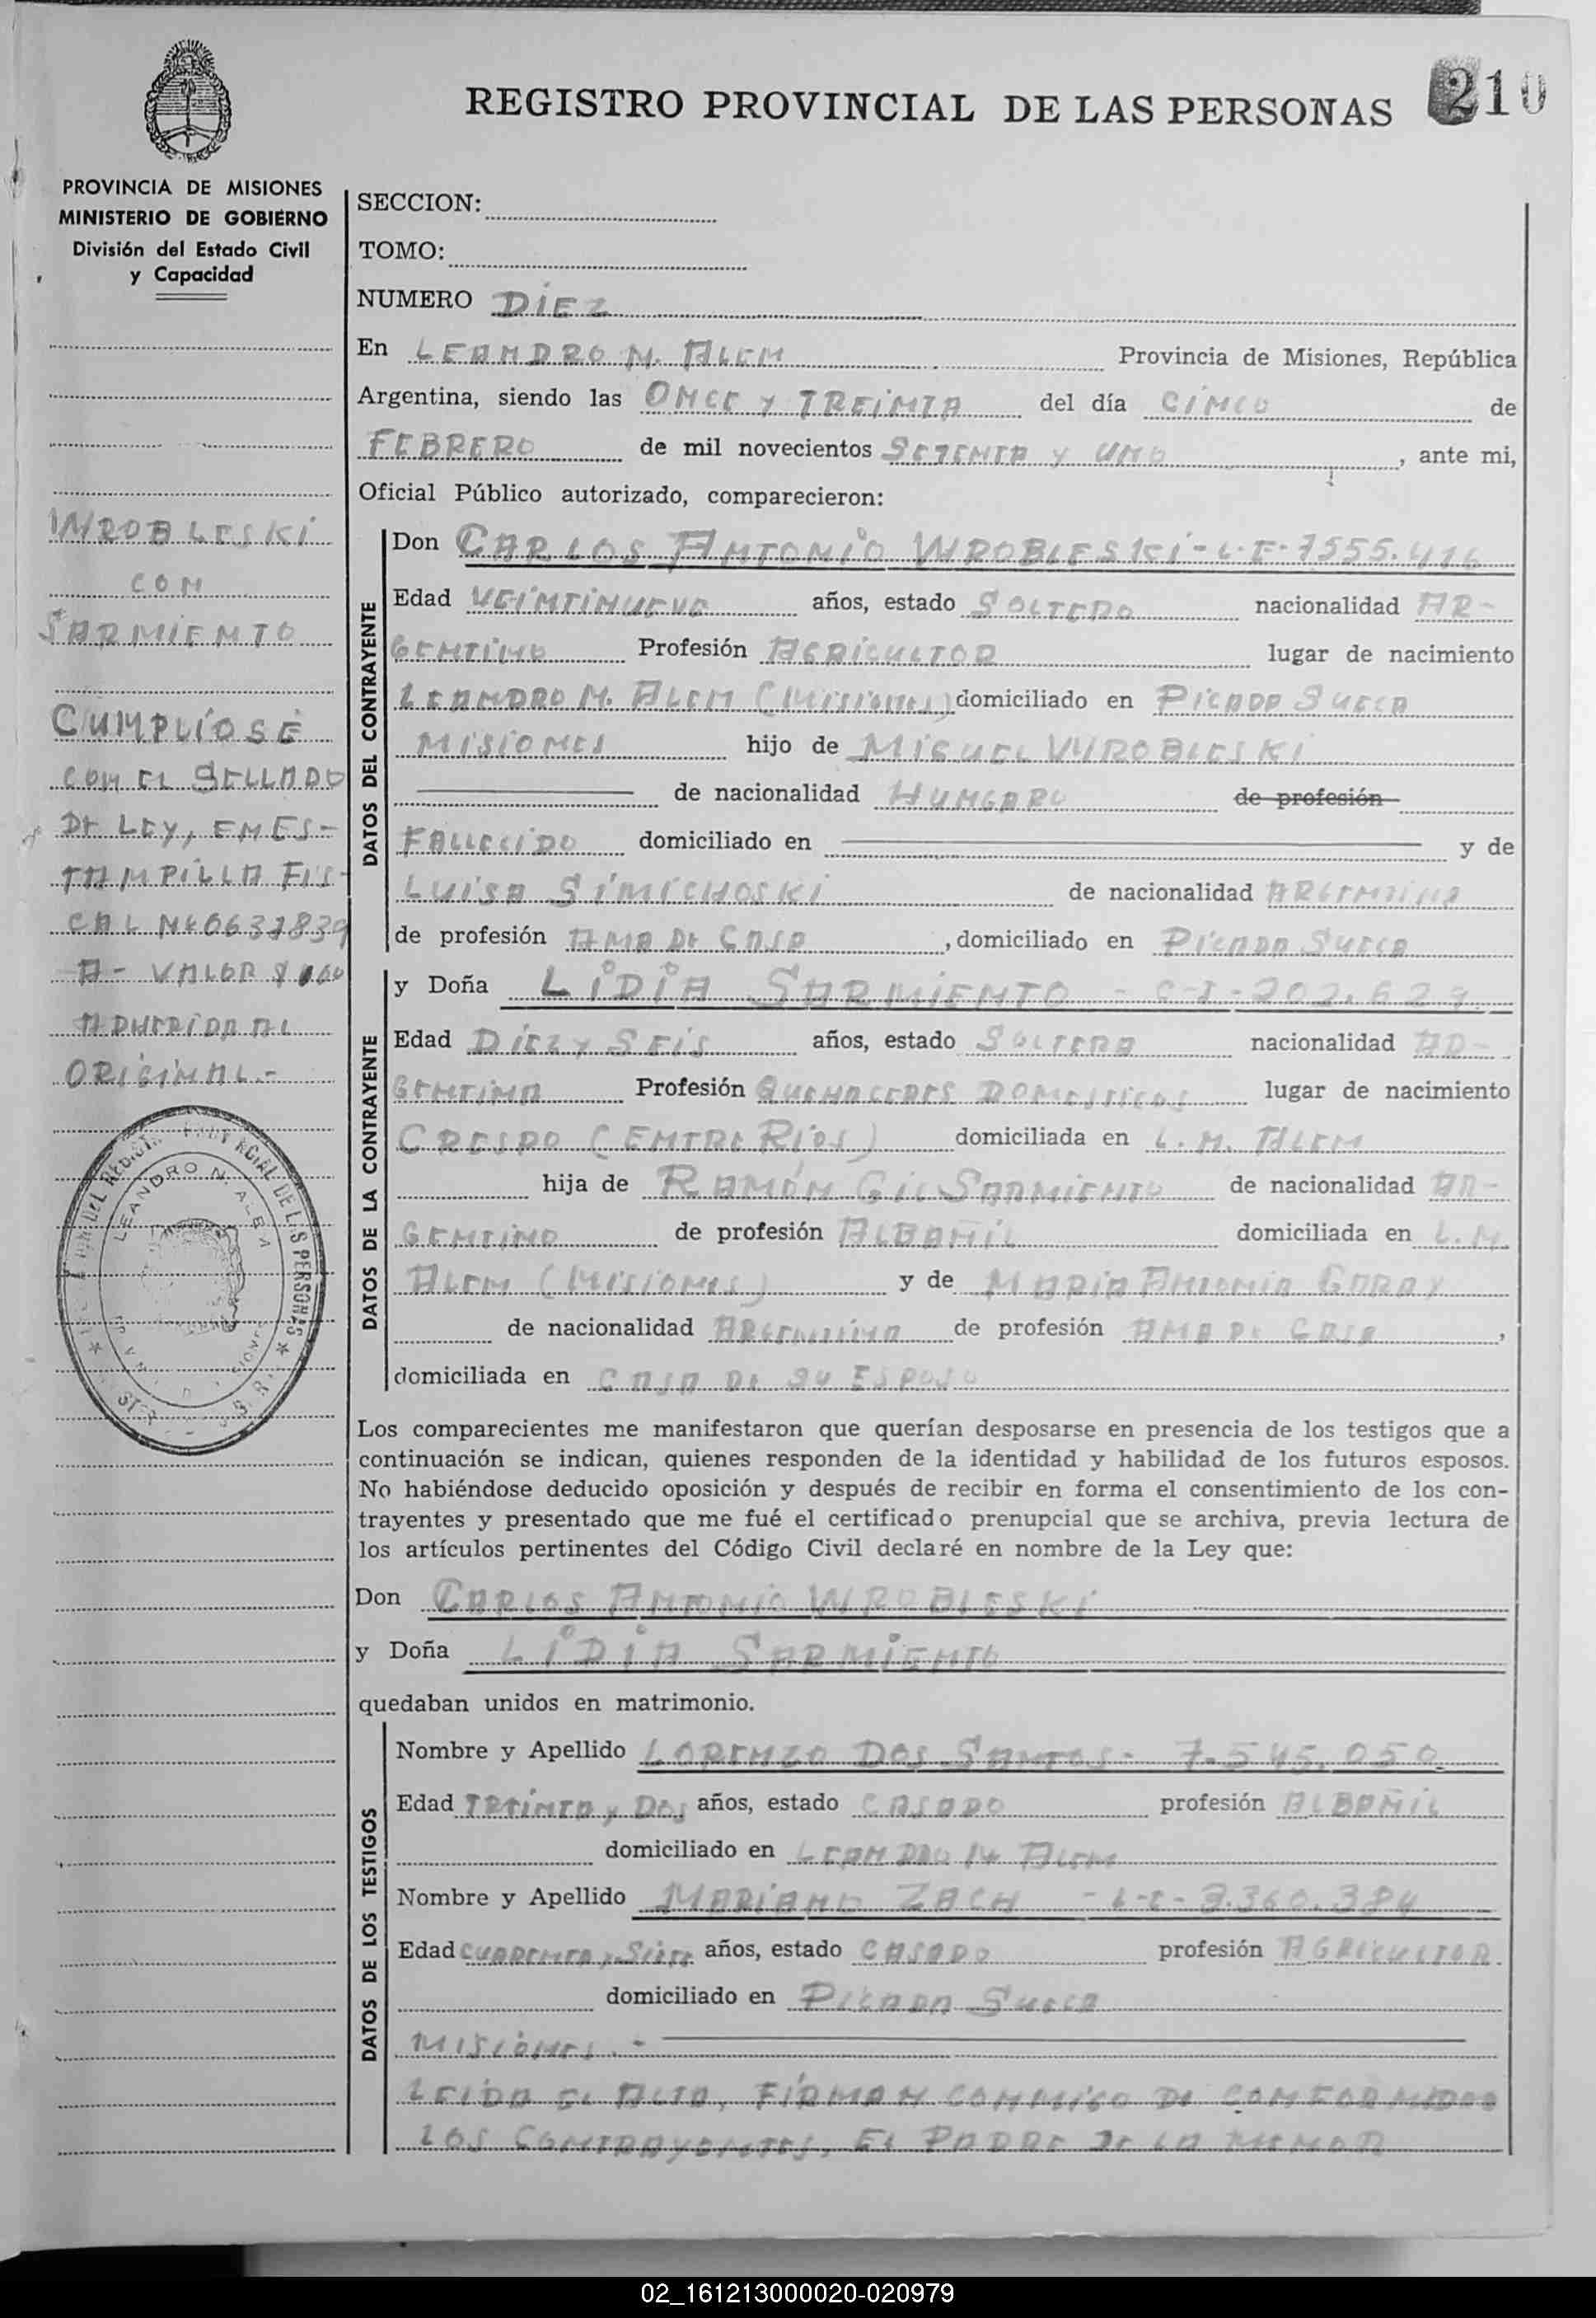 REGISTRO PROVINCIAL DE LAS PERSONAS
210
PROVINCIA DE MISIONES
MINISTERIO DE GOBIERNO
División del Estado Civil
y Capacidad
WROBLESKI
CON
SARMIENTO
CUMPLÍOSE
CON EL SELLADO
DE LEY, EN ES-
TAMPILLA FIS-
CAL Nº 0637839
A- VALOR $
ADHERIDA AL
ORIGINAL.-
LEANDRO N. ALEM
SECCION:
TOMO:
NUMERO DIEZ
En LEANDRO N. ALEM Provincia de Misiones, República
Argentina, siendo las ONCE Y TREINTA del día CINCO de
FEBRERO de mil novecientos SETENTA Y UNO, ante mi,
Oficial Público autorizado, comparecieron:
DATOS DEL CONTRAYENTE
Don CARLOS ANTONIO WROBLESKI - L-E- 7555.416
Edad VEINTINUEVE años, estado SOLTERO nacionalidad AR-
GENTINO Profesión AGRICULTOR lugar de nacimiento
LEANDRO N. ALEM (MISIONES) domiciliado en PICADA SUECA
MISIONES hijo de MIGUEL WROBLESKI
de nacionalidad HUNGARO de profesión
FALLECIDO domiciliado en y de
LUISA SIMICHOSKI de nacionalidad ARGENTINA
de profesión AMA DE CASA, domiciliado en PICADA SUECA
DATOS DE LA CONTRAYENTE
y Doña LIDIA SARMIENTO - C-I- 202.629
Edad DIEZ Y SEIS años, estado SOLTERA nacionalidad AR-
GENTINA Profesión QUEHACERES DOMESTICOS lugar de nacimiento
CRESPO (ENTRE RÍOS) domiciliada en L. N. ALEM
hija de RAMÓN GIL SARMIENTO de nacionalidad AR-
GENTINO de profesión ALBAÑIL domiciliada en L. N.
ALEM (MISIONES) y de MARIA ANTONIA GARAY
de nacionalidad ARGENTINA de profesión AMA DE CASA,
domiciliada en CASA DE SU ESPOSO
Los comparecientes me manifestaron que querían desposarse en presencia de los testigos que a
continuación se indican, quienes responden de la identidad y habilidad de los futuros esposos.
No habiéndose deducido oposición y después de recibir en forma el consentimiento de los con-
trayentes y presentado que me fué el certificado prenupcial que se archiva, previa lectura de
los artículos pertinentes del Código Civil declaré en nombre de la Ley que:
Don CARLOS ANTONIO WROBLESKI
y Doña LIDIA SARMIENTO
quedaban unidos en matrimonio.
DATOS DE LOS TESTIGOS
Nombre y Apellido LORENZO DOS SANTOS - 7.545.050
Edad TREINTA y DOS años, estado CASADO profesión ALBAÑIL
domiciliado en LEANDRO N. ALEM
Nombre y Apellido MARIANO ZACH - L-E- 3.360.384
Edad CUARENTA y SIETE años, estado CASADO profesión AGRICULTOR
domiciliado en PICADA SUECA
MISIONES.-
LEIDA EL ACTA, FIRMAN CONMIGO DE CONFORMIDAD
LOS CONTRAYENTES, EL PADRE DE LA MENOR
02_161213000020-020979